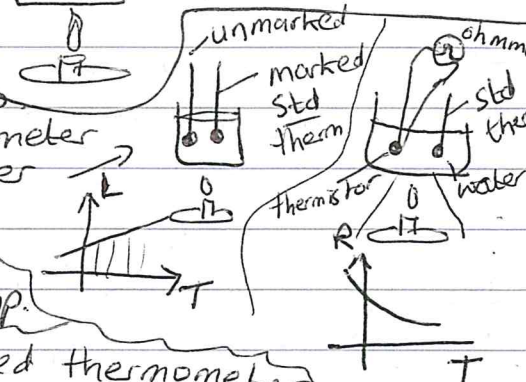 unmarked
marked
std
therm
ohmm
std
ther
meter
er
L
T
thermistor
water
R
T
P.
ed thermomet